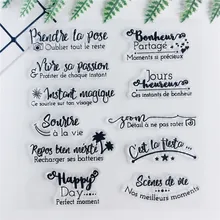 Prendre la pose
Oublier tout le reste
Vivre sa passion
Profiter de chaque instant
Instant magique
Ce sourire sur ton visage
Sourire
à la vie
Repos bien mérité
Recharger ses batteries
Happy
Day
Perfect moment
Bonheur
Partagé
Moments si précieux
Jours
heureux
Ces instants de bonheur
zoom
Détail à ne pas rater
C'est la fiesta...
Scènes de vie
Nos meilleurs moments